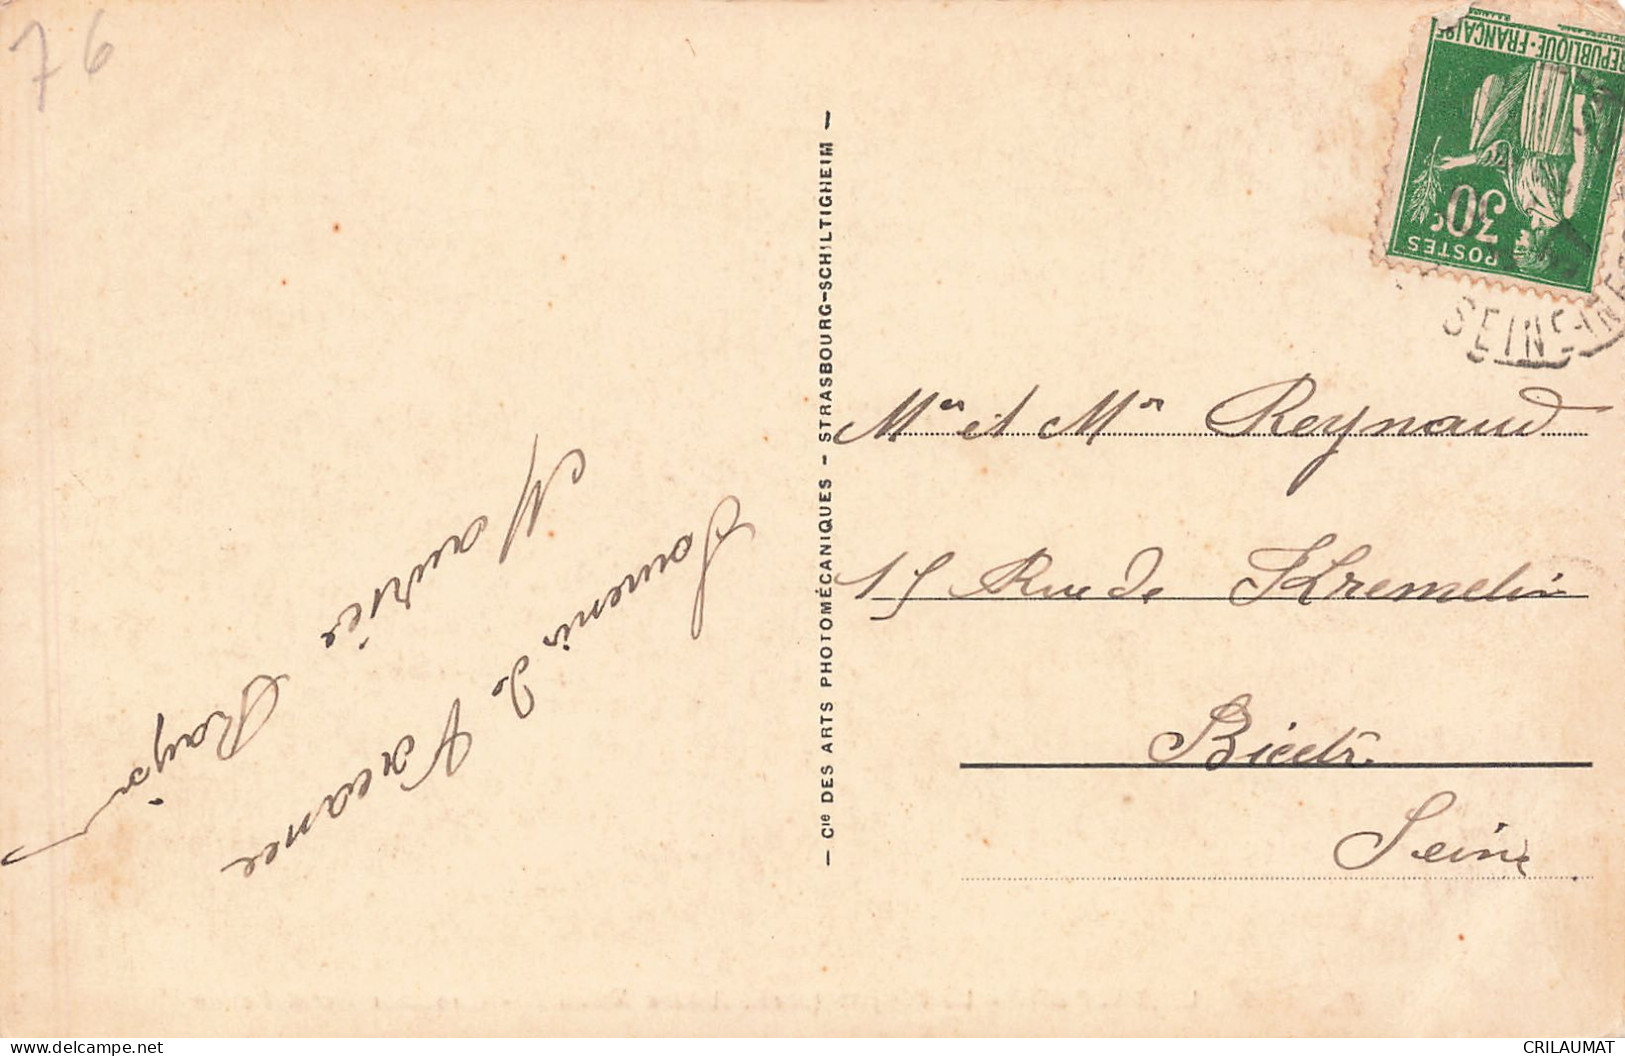 76
Souvenir de Vacance
Maurice
— Cie DES ARTS PHOTOMÉCANIQUES - STRASBOURG-SCHILTIGHEIM —
REPUBLIQUE-FRANÇAISE
30c
POSTES
SEINE-INF
Mme et Mr Reynaud
15 Rue de Kremelin
Bicetre
Seine
CRILAUMAT
www.delcampe.net